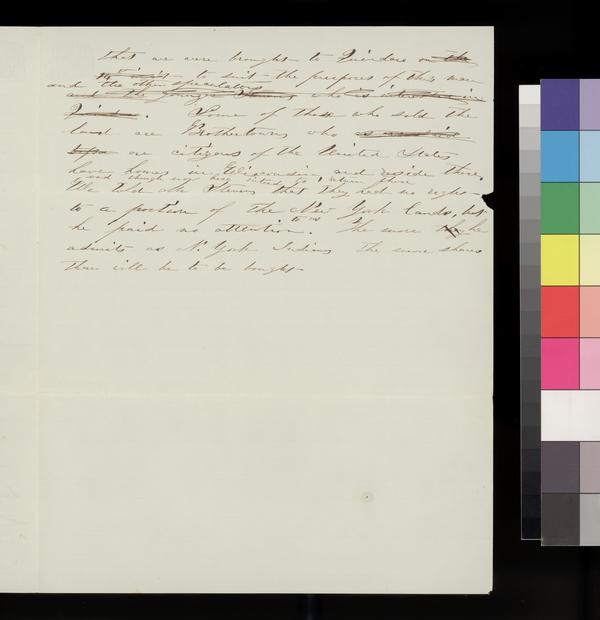 that we were brought to Quindaro on the
to suit the purposes of this man
and the other speculators
and the younger who is interested in
Quindaro. Some of those who sold the
land are Brothertowns who
are citizens of the United States
have homes in Wisconsin and reside there,
and though may intend to return there
We told Mr. that they had no right
to a portion of the New York lands, but
he paid no attention to us. The more he
admits as N. York Indians the more shares
there will be to be bought